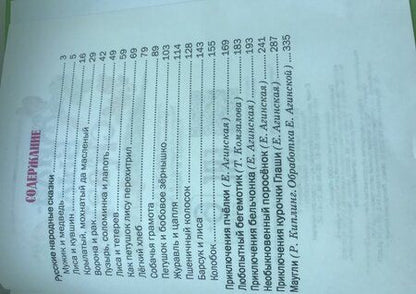 СОДЕРЖАНИЕ
Русские народные сказки
Мужик и медведь 3
Лиса и кувшин 5
Крылатый, мохнатый да масленый 16
Ворона и рак 29
Пузырь, соломинка и лапоть 42
Лиса и тетерев 49
Как петушок лису перехитрил 59
Лёгкий хлеб 69
Собачья грамота 79
Петушок и бобовое зёрнышко 89
Журавль и цапля 103
Пшеничный колосок 114
Барсук и лиса 128
Колобок 143
155
Приключения пчёлки (Е. Агинская) 169
Любопытный бегемотик (Т. Комзалова) 183
Приключения бельчонка (Е. Агинская) 193
Необыкновенный поросёнок (Е. Агинская) 241
Приключения курочки Глаши (Е. Агинская) 287
Маугли (Р. Киплинг. Обработка Е. Агинской) 335